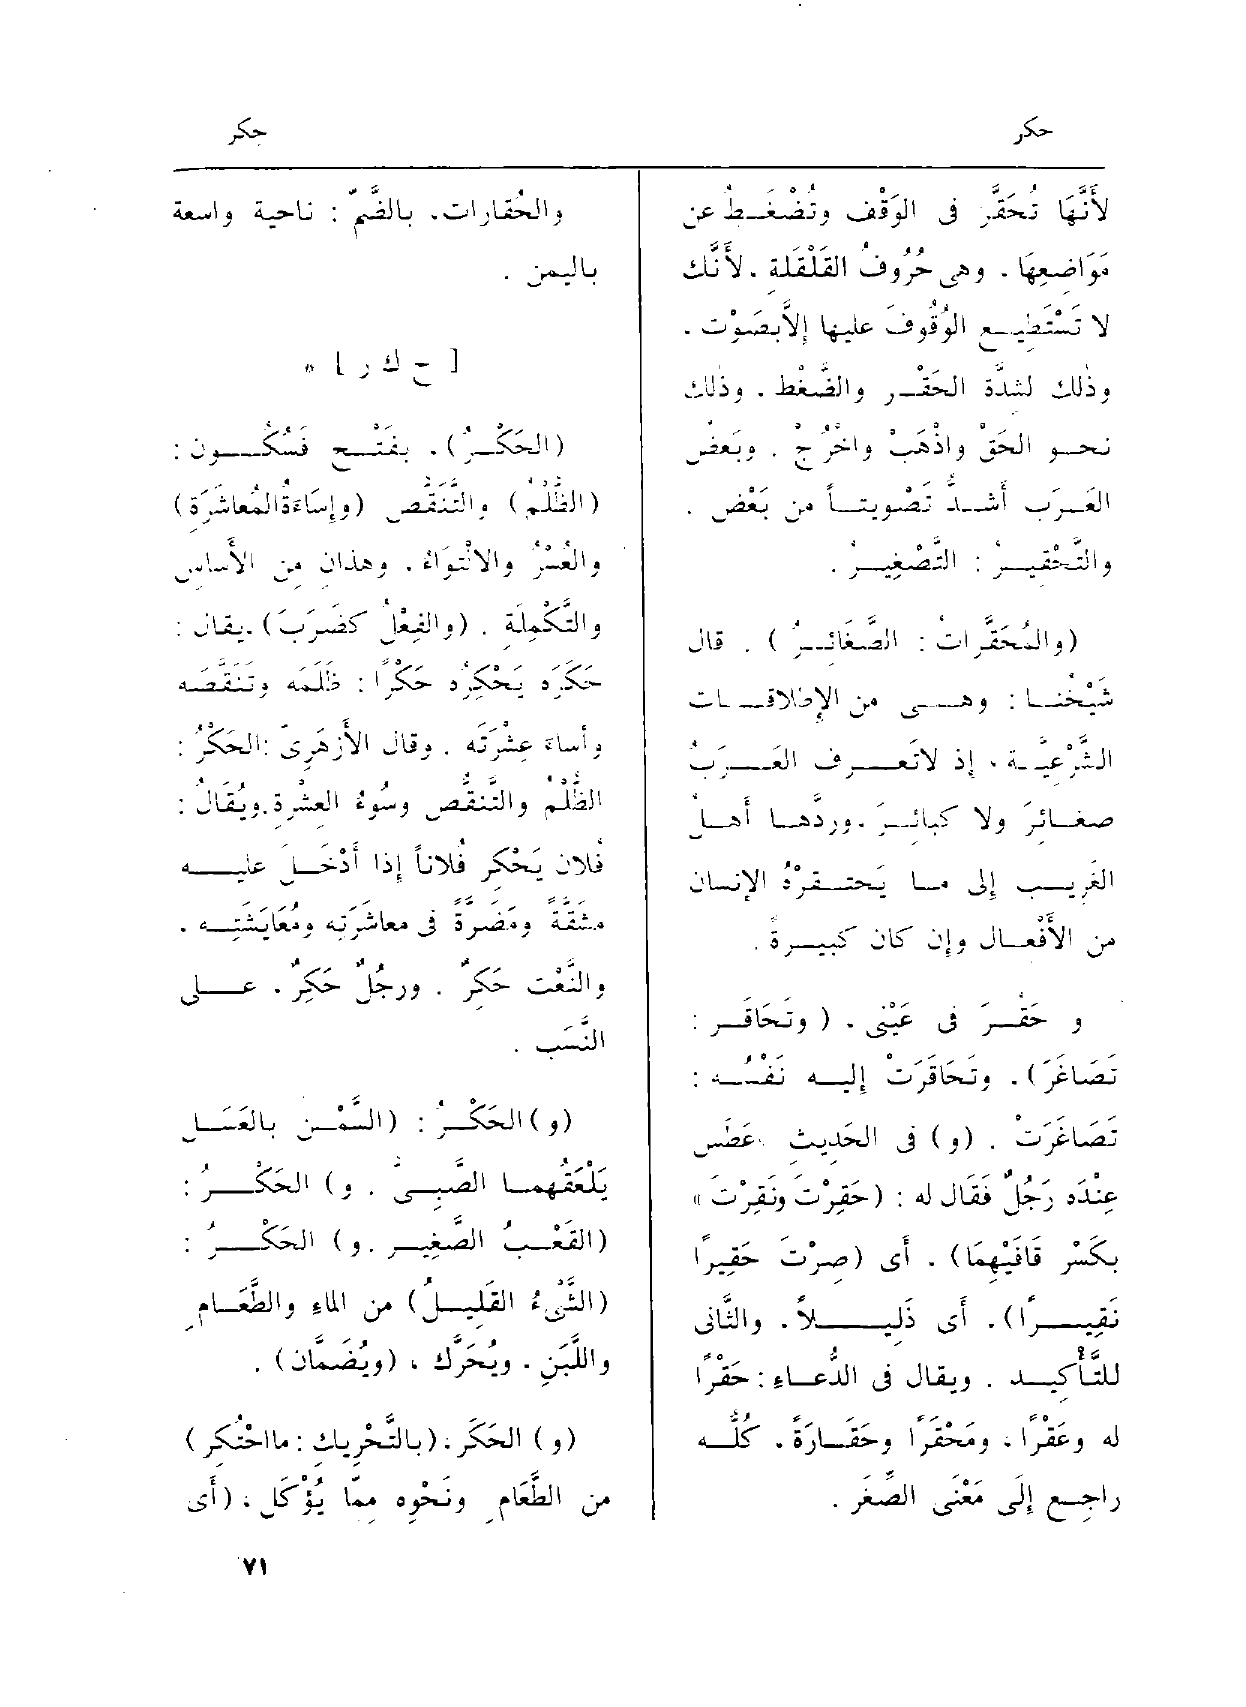 حكر
حكر
لأَنَّهَا تُحَقَّر فى الوَقْف وتُضْغَـط عن
مَوَاضِعِهَا . وهى حُرُوفُ القَلْقَلَةِ . لأَنَّك
لا تَسْتَطِيـع الوُقُوفَ عليها إِلاَّ بصَوْت .
وذٰلك لشدَّة الحَقْـر والضَّغْط . وذٰلك
نحـو الحَقْ واذْهَبْ واخْرُجْ . وبَعضُ
العَـرَب أَشـدُّ تَصْويتـاً من بَعْض .
والتَّحْقيـرُ : التَّصْغِيـرُ .
(والمُحَقَّرات : الصَّغَائِـرُ ) . قال
شَيْخُنـا : وهـى من الإِطلاقـات
الشَّرْعِيَّـة ، إِذ لاتَعـرف العَـرَبُ
صغـائرَ ولا كبائـرَ .وردَّهـا أَهـلُ
الغَرِيـب إِلى مـا يَحتـقرُهُ الإِنسان
من الأَفْعـال وإِن كان كبيـرةً .
و حَقُـرَ فى عَيْنى . ( وتَحَاقَـر :
تَصَاغَرَ) . وتَحَاقَرَتْ إِليـه نَفْسُـه :
تَصَاغَرَتْ . (و) فى الحَدِيث عَطَس
عِنْدَه رَجُلٌ فَقَال له : (حَقِرْتَ ونَقِرْتَ »
بكَسْر قَافَيْهِمَا) . أَى (صِرْتَ حَقِيرًا
نَقِيـرًا) . أَى ذَلِيـلاً . والثَّانى
للتَّأْكيـد . ويقال فى الدُّعـاءِ : حَقْرًا
له وعَقْرًا ، ومَحْقَرًا وحَقَـارَةً . كُلُّـه
راجِـع إِلَى مَعْنَى الصِّغَر .
والحُقارات، بالضَّمّ : ناحية واسعة
باليمن .
[ ح ك ر ] *
(الحَكْـرُ) . بفَتْـح فَسُكُـون :
(الظُّلْمُ) والتَّنَقُّص (وإِسَاءَةُالمُعاشَرَة)
والعُسْرُ والالْتِوَاءُ . وهذان من الأَساسِ
والتَّكْمِلَة . (والفِعْلُ كضَرَبَ) .يقال :
حَكَرَه يَحْكِرُه حَكْرًا : ظَلَمَه وتَنَقَّصَه
وأَساءَ عِشْرَتَه . وقال الأَزْهَرِىّ :الحَكْرُ :
الظُّلْم والتَّنَقُّص وسُوءُ العِشْرةِ.ويُقَالُ :
فُلان يَحْكِر فُلاناً إِذا أَدْخَـلَ عليـه
مشَقَّةً ومَضَرَّةً فى معاشَرَتِه ومُعَايَشَتِـه .
والنَّعْت حَكِرٌ . ورجُلٌ حَكِرٌ . عـلى
النَّسَب .
(و) الحَكْـرُ : (السَّمْـن بالعَسَـل
يَلْعَقُهمـا الصَّبِـىّ . و) الحَكْـرُ :
(القَعْـبُ الصَّغِيـر .و) الحَكْـرُ :
(الشَّىْءُ القَلِيـلُ) من الماءِ والطَّعَـامِ
واللَّبَنِ . ويُحَرَّك ، (ويُضَمَّان) .
(و) الحَكَر، (بالتَّحْرِيكِ : مااحْتُكِر)
من الطَّعَامِ ونَحْوِه ممّا يُؤْكَل ، (أَى
٧١